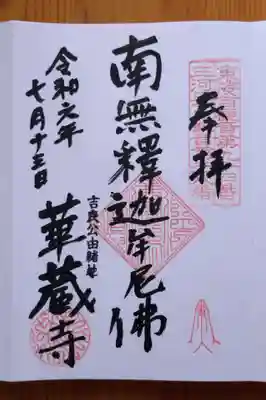 奉拝
南無釋迦牟尼佛
吉良公由緒地
華蔵寺
令和元年
七月十三日